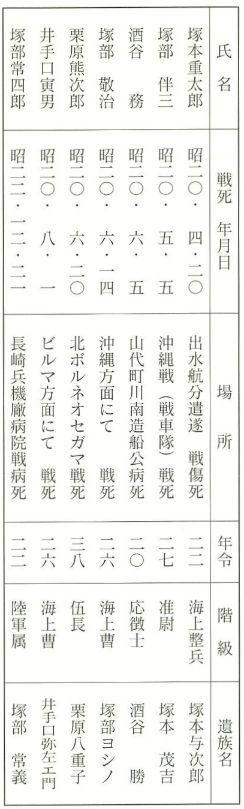 氏名 戦死 年月日 場所 年令 階級 遺族名
塚本重太郎 昭二〇・四・二〇 出水航分遣遂 戦傷死 二二 海上整兵 塚本与次郎
塚部 伴三 昭二〇・五・五 沖縄戦（戦車隊）戦死 二七 准尉 塚本 茂吉
酒谷 務 昭二〇・六・五 山代町川南造船公病死 二〇 応徴士 酒谷 勝
塚部 敬治 昭二〇・六・一四 沖縄方面にて 戦死 二六 海上曹 塚部ヨシノ
栗原熊次郎 昭二〇・六・二〇 北ボルネオセガマ 戦死 三八 伍長 栗原八重子
井手口寅男 昭二〇・八・一 ビルマ方面にて 戦死 二六 海上曹 井手口弥左エ門
塚部常四郎 昭二二・一二・二一 長崎兵機廠病院戦病死 二二 陸軍属 塚部 常義